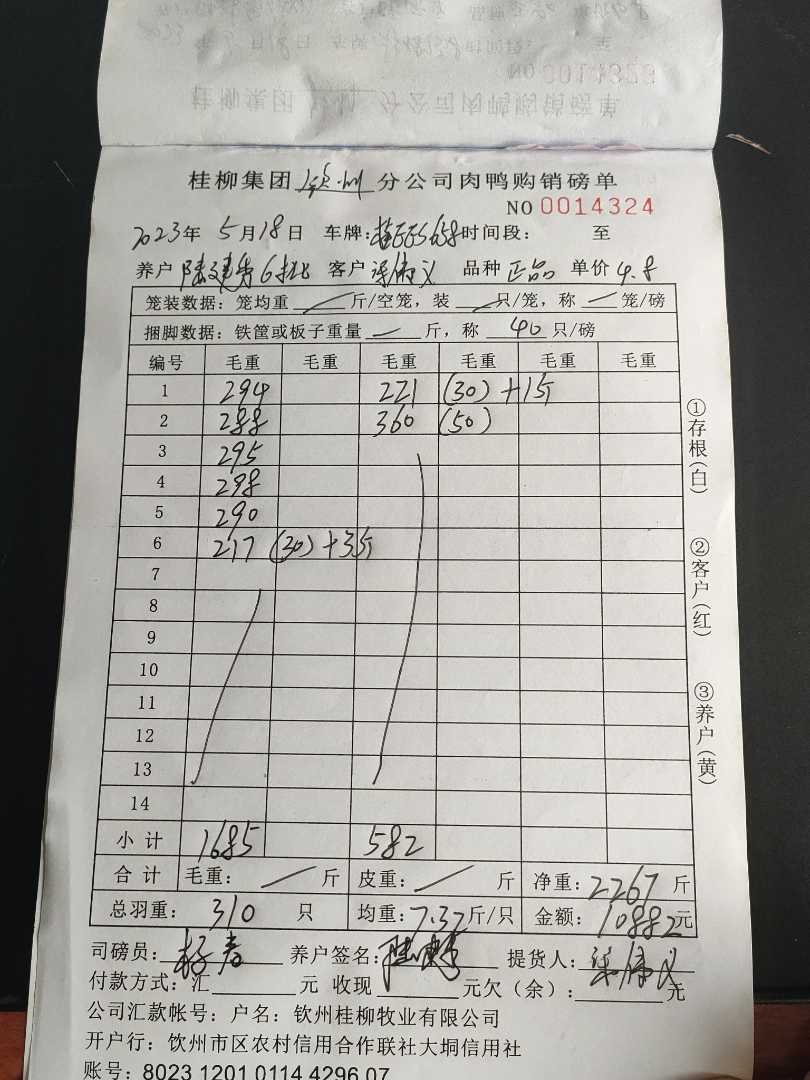 NO 0014323
桂柳集团 钦州 分公司肉鸭购销磅单
NO 0014324
2023年 5月18日 车牌: 时间段: 至
养户 6批 客户 品种 正品 单价 4.8
笼装数据: 笼均重 / 斤/空笼, 装 / 只/笼, 称 / 笼/磅
捆脚数据: 铁筐或板子重量 / 斤, 称 40 只/磅
编号 毛重 毛重 毛重 毛重 毛重 毛重
1 294 221 (30) +1斤
2 288 360 (50)
3 295
4 298
5 290
6 217 (30) +3斤
7
8
9
10
11
12
13
14
小计 1685 582
合计 毛重: / 斤 皮重: / 斤 净重: 2267 斤
总羽重: 310 只 均重: 7.37斤/只 金额: 10882元
司磅员: 养户签名: 提货人:
付款方式: 汇 元 收现 元欠(余): 元
公司汇款帐号: 户名: 钦州桂柳牧业有限公司
开户行: 饮州市区农村信用合作联社大垌信用社
账号: 8023 1201 0114 4296 07
①存根(白)
②客户(红)
③养户(黄)